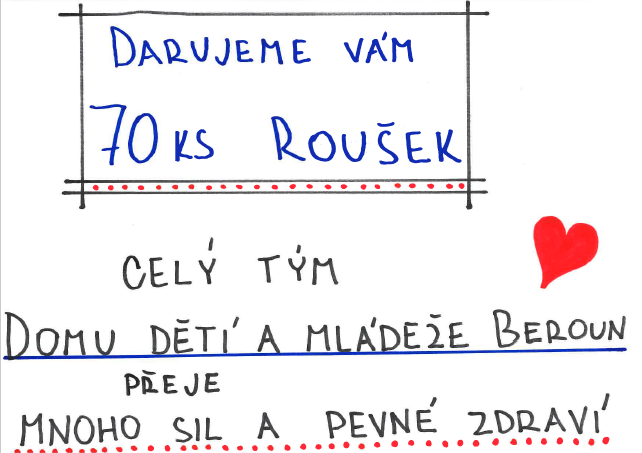 DARUJEME VÁM
70 KS ROUŠEK
CELÝ TÝM
DOMU DĚTÍ A MLÁDEŽE BEROUN
PŘEJE
MNOHO SIL A PEVNÉ ZDRAVÍ